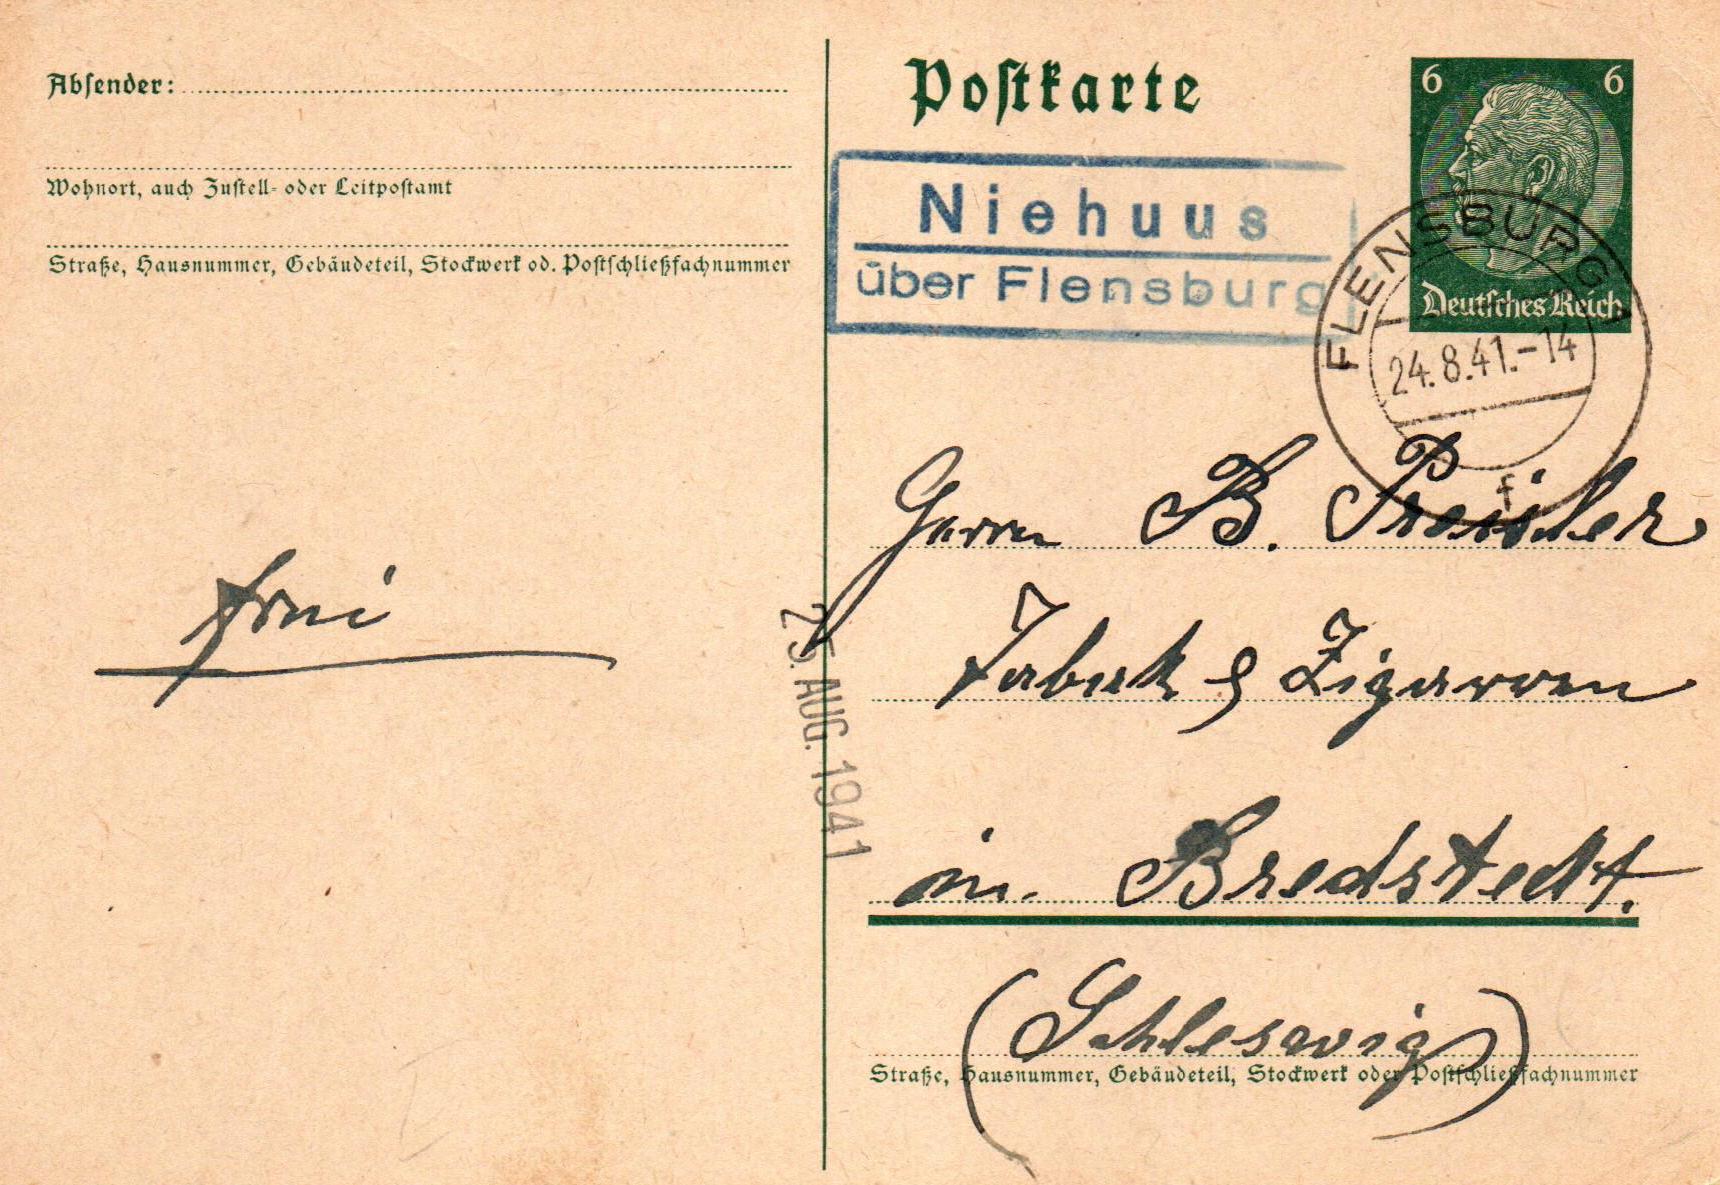 Absender:
Wohnort, auch Zustell- oder Leitpostamt
Straße, Hausnummer, Gebäudeteil, Stockwerk od. Postschließfachnummer
frei
Postkarte
6 6
Deutsches Reich
Niehuus
über Flensburg
FLENSBURG 1
24.8.41.-14
f
25. AUG. 1941
Herrn B. Preisler
Tabak & Zigarren
in Bredstedt.
(Schleswig)
Straße, Hausnummer, Gebäudeteil, Stockwerk oder Postschließfachnummer